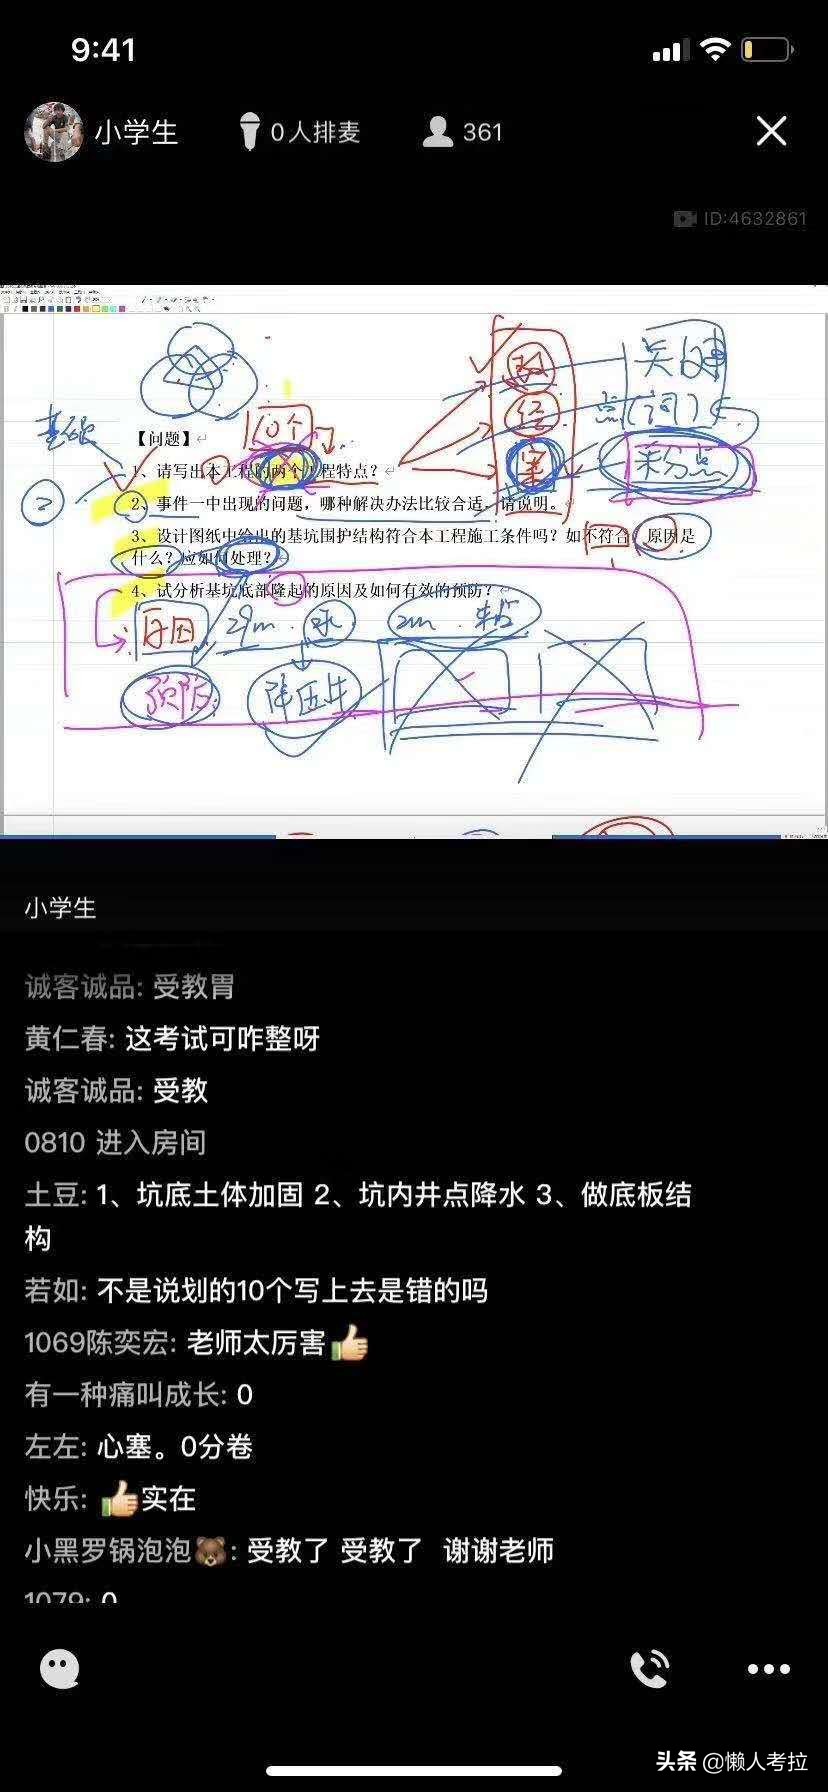 9:41
小学生
0人排麦
361
ID:4632861
关键
点(词)
10个
基础
【问题】
采分点
1、请写出本工程的两个工程特点?
2、事件一中出现的问题，哪种解决办法比较合适，请说明。
②
3、设计图纸中给出的基坑围护结构符合本工程施工条件吗？如不符合，原因是
什么？应如何处理？
4、试分析基坑底部隆起的原因及如何有效的预防？
原因
29m
2m
预防
降压井
小学生
诚客诚品: 受教胃
黄仁春: 这考试可咋整呀
诚客诚品: 受教
0810 进入房间
土豆: 1、坑底土体加固 2、坑内井点降水 3、做底板结
构
若如: 不是说划的10个写上去是错的吗
1069陈奕宏: 老师太厉害👍
有一种痛叫成长: 0
左左: 心塞。0分卷
快乐: 👍实在
小黑罗锅泡泡🐻: 受教了 受教了 谢谢老师
1079: 0
头条 @懒人考拉